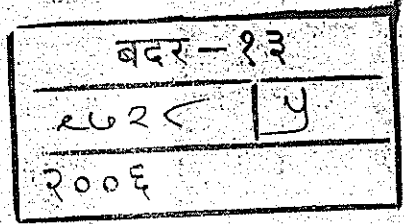 बदर - १३
९७२८ | ५
२००६